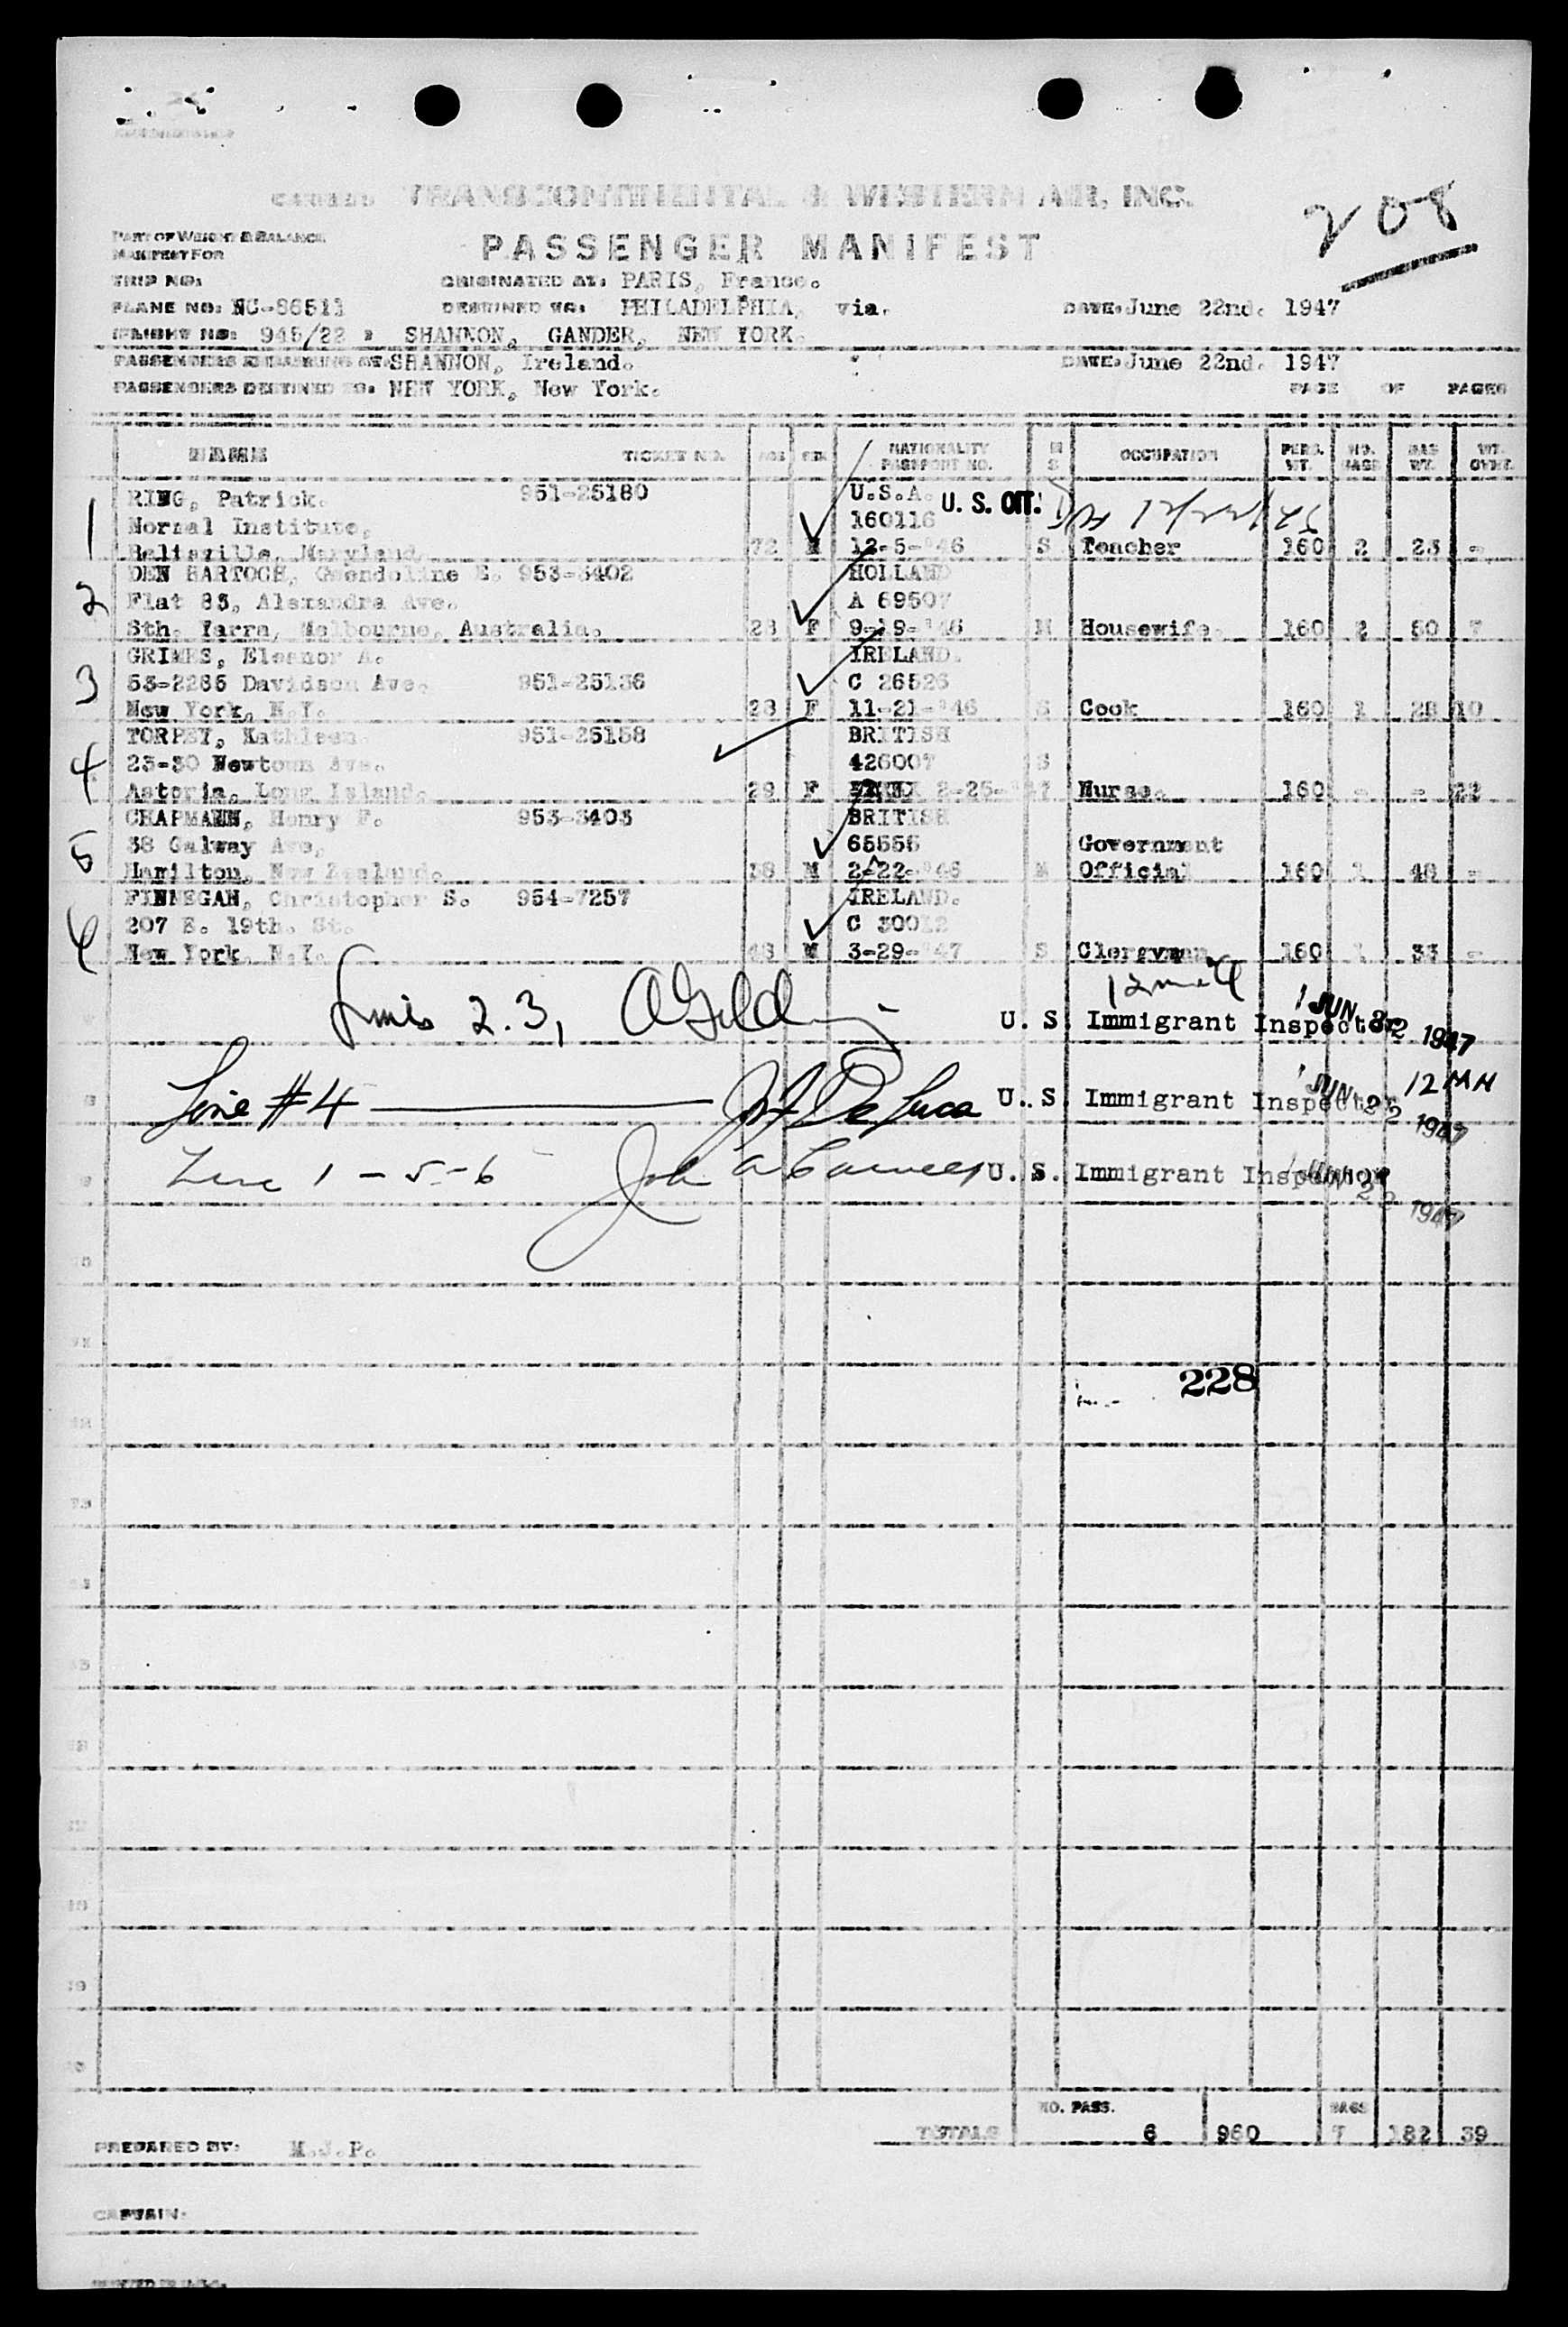 TRANSCONTINENTAL & WESTERN AIR, INC.
208
PART OF WEIGHT & BALANCE
MANIFEST FOR
PASSENGER MANIFEST
TRIP NO: ORIGINATED AT: PARIS, France.
PLANE NO: NC-86511 DESTINED TO: PHILADELPHIA, via. DATE: June 22nd. 1947
FLIGHT NO: 945/22 SHANNON, GANDER, NEW YORK.
PASSENGERS EMBARKING AT: SHANNON, Ireland. DATE: June 22nd. 1947
PASSENGERS DESTINED TO: NEW YORK, New York. PAGE OF PAGES
NAME TICKET NO. AGE SEX NATIONALITY PASSPORT NO. M S OCCUPATION PERS. WT. NO. BAGS BAG WT. WT. OVHT.
RING, Patrick. 951-25180 U.S.A. U. S. CIT.
1 Normal Institute, 160116
Maryland 72 M 12-5-'46 S Teacher 160 2 23 -
DEN HARTOGH, Gwendoline E. 953-3402 HOLLAND
2 Flat 83, Alexandra Ave. A 69507
Sth. Yarra, Melbourne, Australia. 28 F 9-19-'46 M Housewife. 160 2 50 7
GRIMES, Eleanor A. IRELAND.
3 53-2285 Davidson Ave. 951-25136 C 26526
New York, N.Y. 28 F 11-21-'46 S Cook 160 1 28 10
TORPEY, Kathleen 951-25158 BRITISH
4 23-30 Newtown Ave. 426007 S
Astoria, Long Island. 29 F 2-25- Nurse. 160 - - 22
CHAPMANN, Henry F. 953-3403 BRITISH
5 38 Galway Ave, 65555 Government
Hamilton, New Zealand. 38 M 2-22-'46 M Official 160 1 48 -
FINNEGAN, Christopher S. 954-7257 IRELAND.
6 207 E. 19th. St. C 30012
New York, N.Y. 48 M 3-29-'47 S Clergyman 160 1 33 -
Lines 2.3, U. S. Immigrant Inspector JUN 22 1947
Line #4 De Luca U. S. Immigrant Inspector JUN 22 1947 12 MN
Line 1 - 5 - 6 John U. S. Immigrant Inspector JUN 22 1947
228
NO. PASS. BAGS
TOTALS 6 960 7 182 39
PREPARED BY: M.J.P.
CAPTAIN: